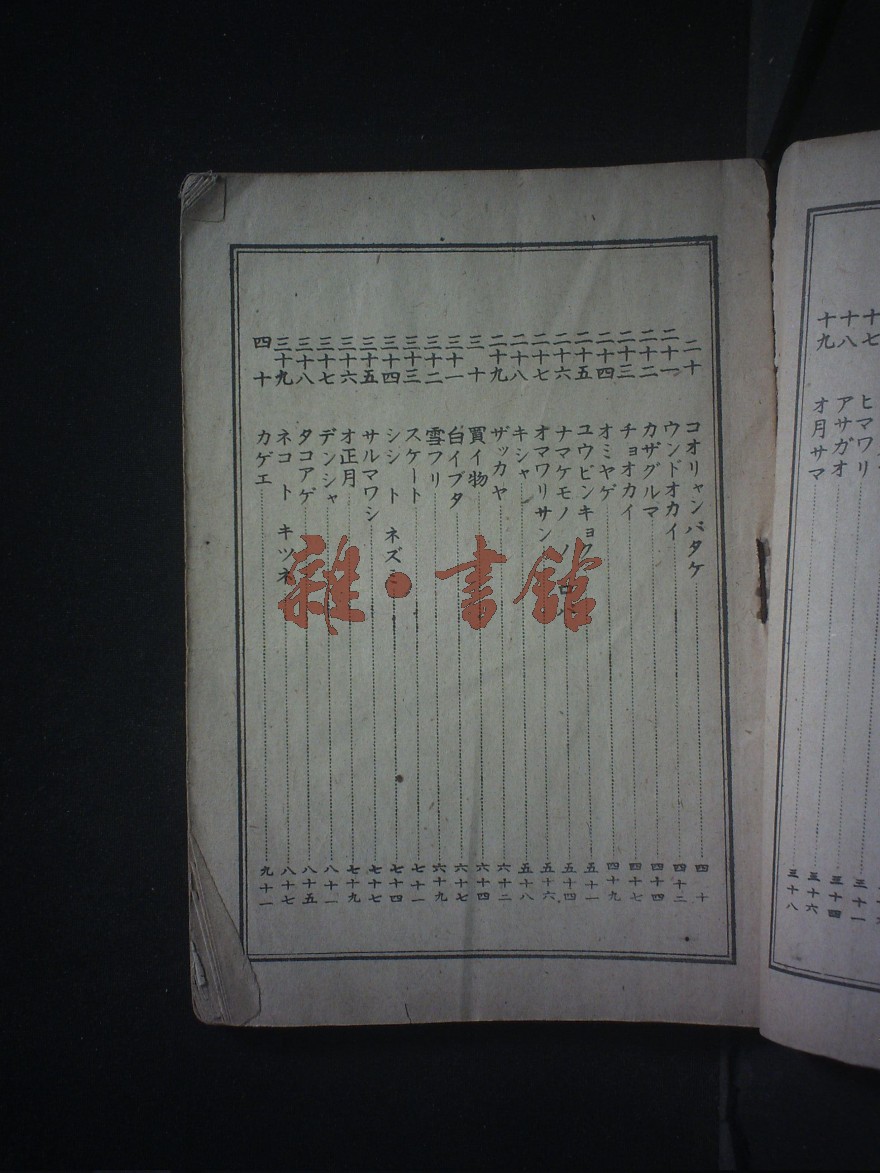 三十一
十七 ヒマワリ 三十四
十八 アサガオ 三十六
十九 オ月サマ 三十八
二十 コオリャンバタケ 四十
二十一 ウンドオカイ 四十二
二十二 カザグルマ 四十四
二十三 チョオカイ 四十七
二十四 オミヤゲ 四十九
二十五 ユウビンキョク 五十一
二十六 ナマケモノ ノ ロバ 五十四
二十七 オマワリサン 五十六
二十八 キシャ 五十八
二十九 ザッカヤ 六十二
三十 買イ物 六十四
三十一 白イブタ 六十七
三十二 雪フリ 六十九
三十三 スケート 七十一
三十四 シシ ト ネズミ 七十四
三十五 サルマワシ 七十七
三十六 オ正月 七十九
三十七 デンシャ 八十一
三十八 タコアゲ 八十五
三十九 ネコ ト キツネ 八十七
四十 カゲエ 九十一
雜·書館